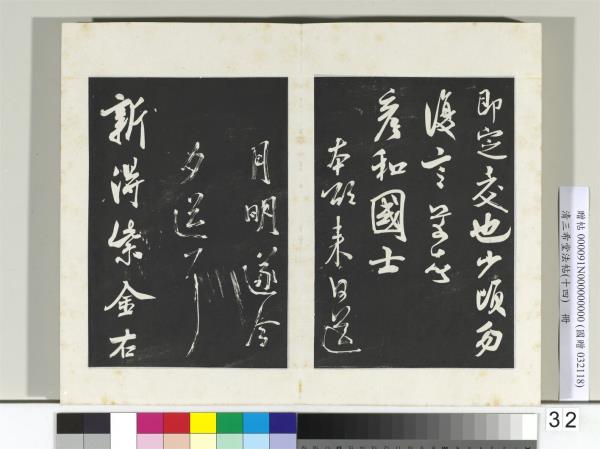 即定交也少頃勿
復言芾頓首
彥和國士
本欲來日送
月明遂今
夕送耳
新得紫金右
贈帖 000091N000000000 (國贈 032118)
清三希堂法帖(十四) 冊
32